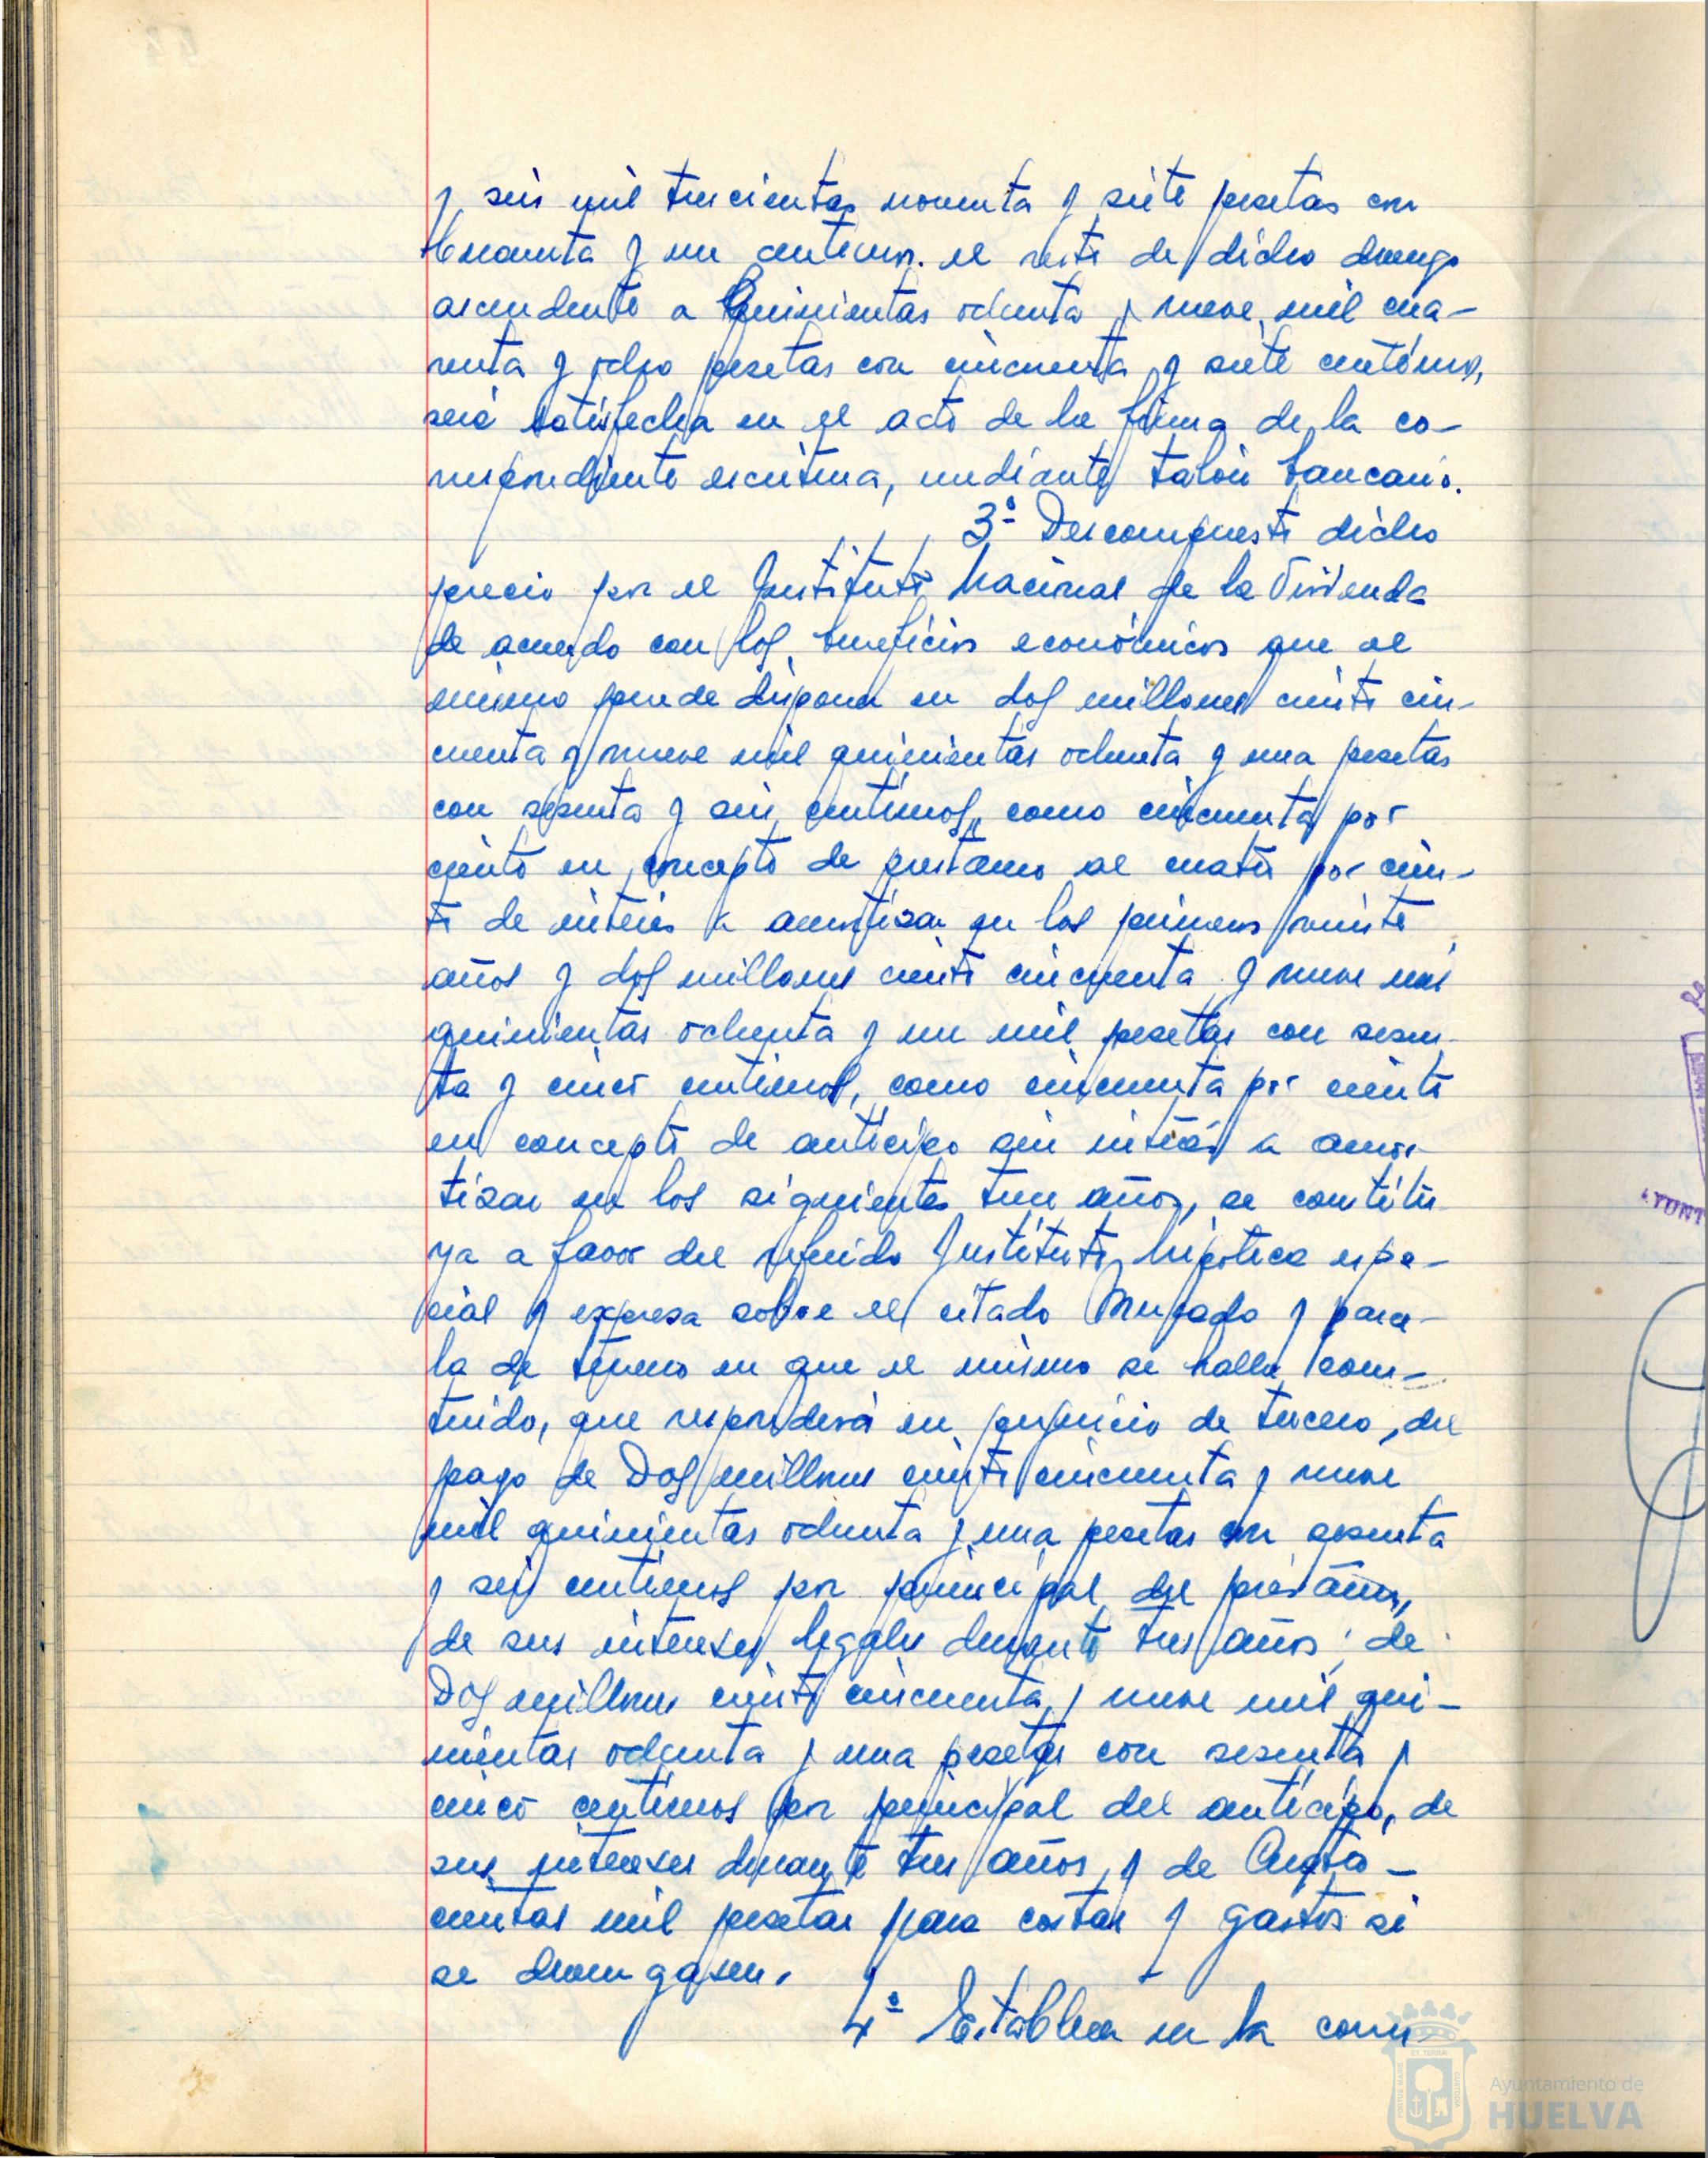 y seis mil trescientas noventa y siete pesetas con
cuarenta y un centimos. el resto de dicho devengo
ascendente a Quinientas ochenta y nueve mil cua-
renta y ocho pesetas con cincuenta y siete centimos,
será satisfecha en el acto de la firma de la co-
rrespondiente escritura, mediante talón bancario.
3º Descompuesto dicho
precio por el Instituto Nacional de la Vivienda
de acuerdo con los beneficios económicos que el
mismo puede disponer en dos millones ciento cin-
cuenta y nueve mil quinientas ochenta y una pesetas
con sesenta y seis centimos, como cincuenta por
ciento en concepto de prestamo al cuatro por cien-
to de interés a amortizar en los primeros veinte
años y dos millones ciento cincuenta y nueve mil
quinientas ochenta y un mil pesetas con sesen-
ta y cinco centimos, como cincuenta por ciento
en concepto de anticipo sin interés a amor-
tizar en los siguientes tres años, se constitu-
ya a favor del referido Instituto, hipoteca espe-
cial y expresa sobre el citado Mercado y parce-
la de terreno en que el mismo se halla cons-
truido, que responderá en perjuicio de tercero, del
pago de Dos millones ciento cincuenta y nueve
mil quinientas ochenta y una pesetas con sesenta
y seis centimos por principal del préstamo,
de sus intereses legales durante tres años; de
Dos millones ciento cincuenta y nueve mil qui-
nientas ochenta y una pesetas con sesenta y
cinco centimos por principal del anticipo, de
sus intereses durante tres años, y de Cuatro-
cientas mil pesetas para costas y gastos si
se devengasen.
4º Establecer en la corres-
Ayuntamiento de
HUELVA